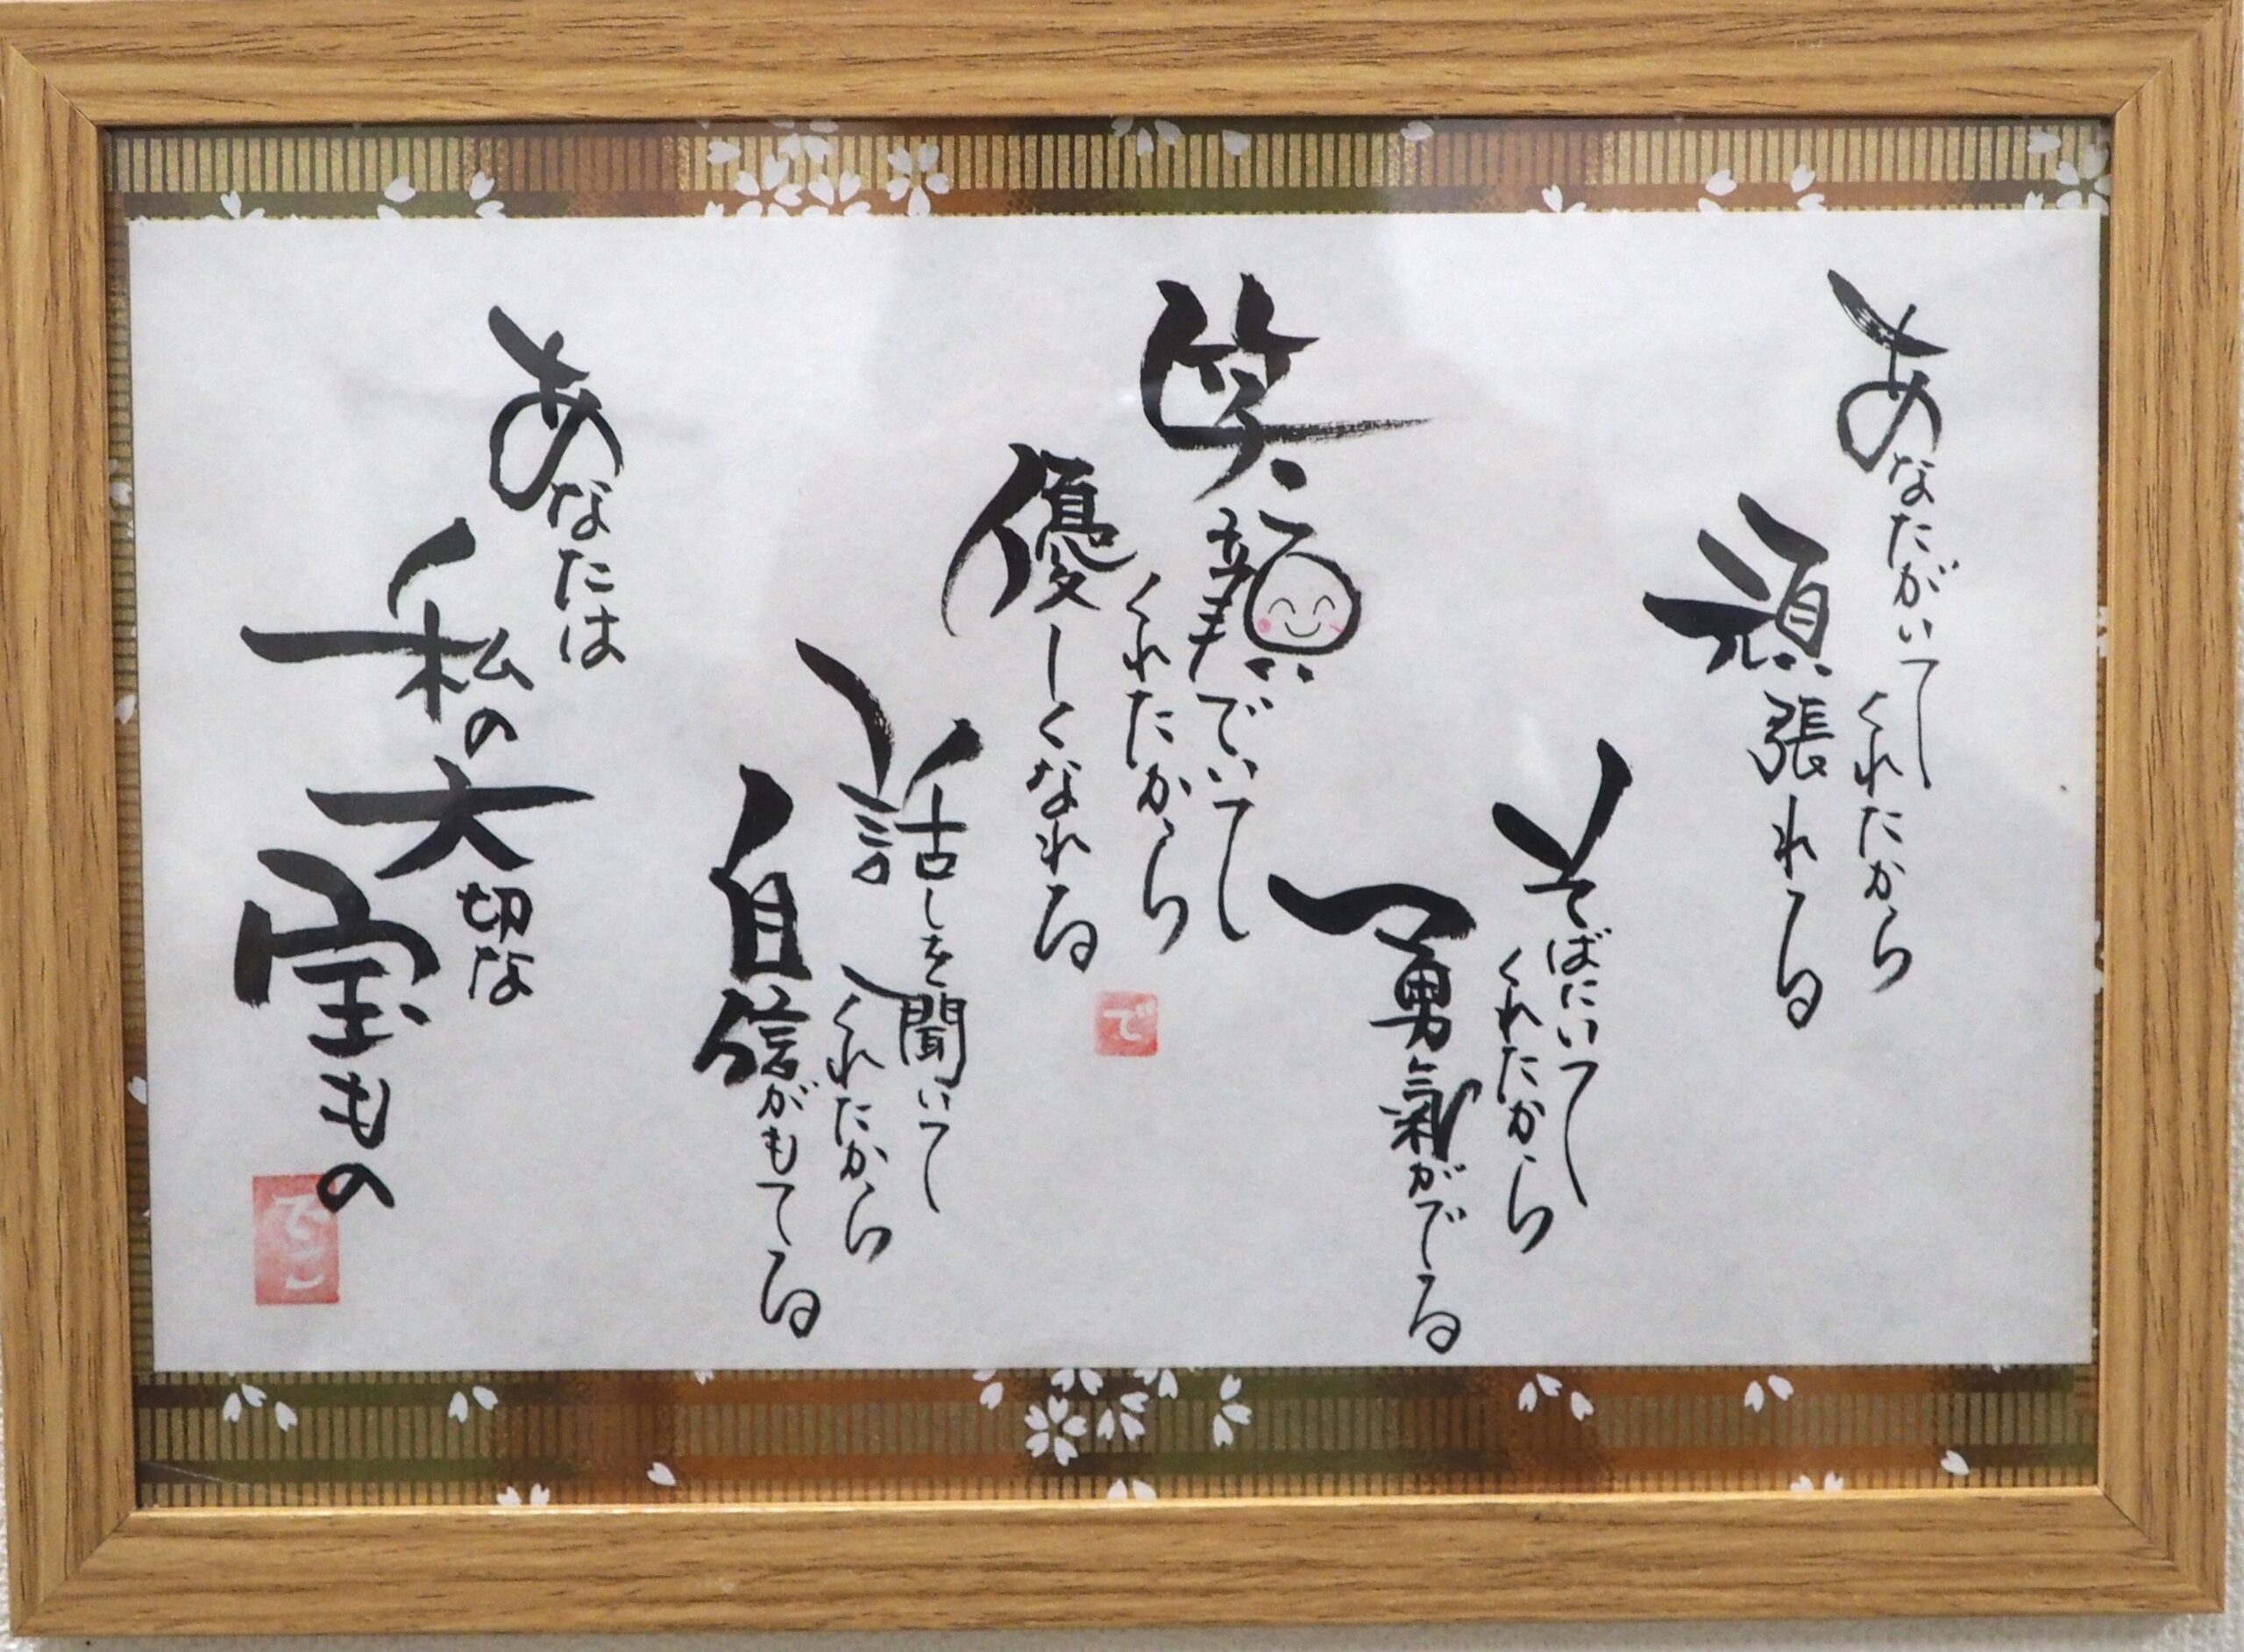 あなたがいて
くれたから
頑張れる
そばにいて
くれたから
勇氣がでる
笑顔でいて
くれたから
優しくなれる
話しを聞いて
くれたから
自信がもてる
あなたは
私の
大切な
宝もの
で
てこ